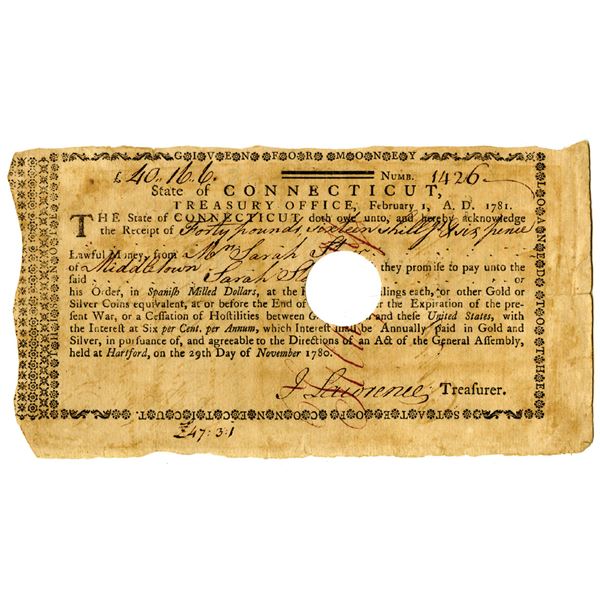 GIVEN FOR MONEY
£ 40.. 16. 6. NUMB. 1426
State of CONNECTICUT,
TREASURY OFFICE, February 1, A. D. 1781.
THE State of CONNECTICUT doth owe unto, and hereby acknowledge
the Receipt of Forty pounds, sixteen shills & six pence
Lawful Money, from Mrs Sarah
of Middletown they promise to pay unto the
said Sarah or
his Order, in Spanish Milled Dollars, at the llings each, or other Gold or
Silver Coins equivalent, at or before the End of er the Expiration of the pre-
sent War, or a Cessation of Hostilities between G and these United States, with
the Interest at Six per Cent. per Annum, which Interest shall be Annually paid in Gold and
Silver, in pursuance of, and agreeable to the Directions of an Act of the General Assembly,
held at Hartford, on the 29th Day of November 1780.
J Lawrence Treasurer.
STATE OF CONNECTICUT.
£47: 3: 1
LOANED TO THE